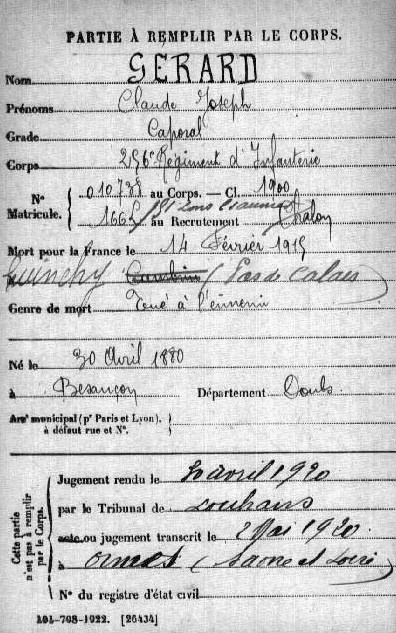 PARTIE À REMPLIR PAR LE CORPS.
Nom GERARD
Prénoms Claude Joseph
Grade Caporal
Corps 256e Régiment d'Infanterie
N° Matricule.
010738 au Corps. — Cl. 1900
1665 au Recrutement Chalon
Mort pour la France le 14 Février 1915
à Cuinchy Cambrin (Pas de Calais)
Genre de mort Tué à l'ennemi
Né le 30 Avril 1880
à Besançon Département Doubs
Arrt municipal (pr Paris et Lyon),
à défaut rue et N°.
Cette partie n'est pas à remplir par le Corps.
Jugement rendu le avril 1920
par le Tribunal de Louhans
acte ou jugement transcrit le 2 Mai 1920.
à (Saone et Loire)
N° du registre d'état civil
101-708-1922. [26434]